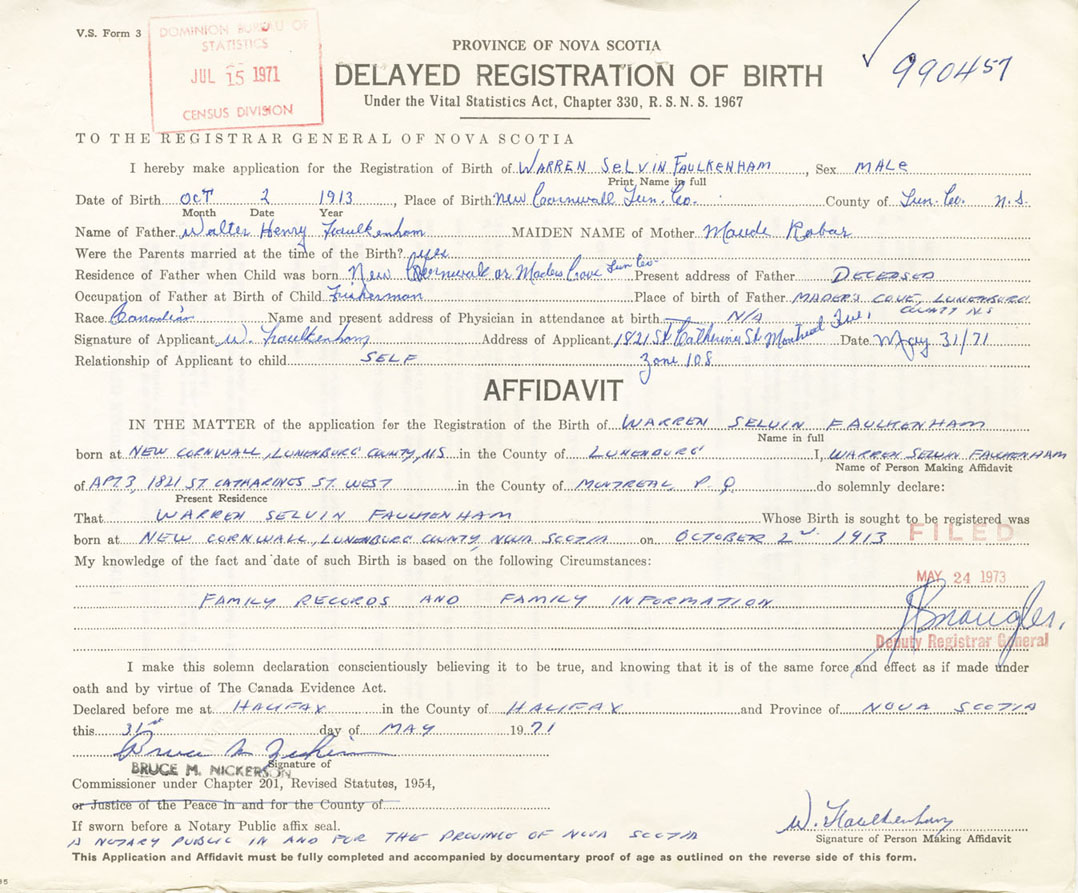 V.S. Form 3
DOMINION BUREAU OF
STATISTICS
JUL 15 1971
CENSUS DIVISION
990457
PROVINCE OF NOVA SCOTIA
DELAYED REGISTRATION OF BIRTH
Under the Vital Statistics Act, Chapter 330, R.S.N.S. 1967
TO THE REGISTRAR GENERAL OF NOVA SCOTIA
I hereby make application for the Registration of Birth of WARREN SELVIN FAULKENHAM, Sex MALE
Print Name in full
Date of Birth OCT 2 1913, Place of Birth New Cornwall Lun. Co. County of Lun. Co. N.S.
Month Date Year
Name of Father Walter Henry Faulkenham MAIDEN NAME of Mother Maude Robar
Were the Parents married at the time of the Birth? yes
Residence of Father when Child was born New Cornwall or Maders Cove Lun Co Present address of Father DECEASED
Occupation of Father at Birth of Child Fisherman Place of birth of Father MADER'S COVE, LUNENBURG
COUNTY NS
Race Canadian Name and present address of Physician in attendance at birth N/A
Signature of Applicant W. Faulkenham Address of Applicant 1821 St Catherine St. Montreal Date May 31/71
Relationship of Applicant to child SELF Zone 108
AFFIDAVIT
IN THE MATTER of the application for the Registration of the Birth of WARREN SELVIN FAULKENHAM
Name in full
born at NEW CORNWALL, LUNENBURG COUNTY, NS in the County of LUNENBURG I, WARREN SELVIN FAULKENHAM
Name of Person Making Affidavit
of APT. 3, 1821 ST. CATHARINES ST. WEST in the County of MONTREAL P.Q. do solemnly declare:
Present Residence
That WARREN SELVIN FAULKENHAM Whose Birth is sought to be registered was
born at NEW CORNWALL, LUNENBURG COUNTY, NOVA SCOTIA on OCTOBER 2nd. 1913
FILED
My knowledge of the fact and date of such Birth is based on the following Circumstances:
MAY 24 1973
FAMILY RECORDS AND FAMILY INFORMATION
Deputy Registrar General
I make this solemn declaration conscientiously believing it to be true, and knowing that it is of the same force and effect as if made under
oath and by virtue of The Canada Evidence Act.
Declared before me at HALIFAX in the County of HALIFAX and Province of NOVA SCOTIA
this 31st day of MAY 1971
Signature of
BRUCE M. NICKERSON
Commissioner under Chapter 201, Revised Statutes, 1954,
or Justice of the Peace in and for the County of
If sworn before a Notary Public affix seal.
A NOTARY PUBLIC IN AND FOR THE PROVINCE OF NOVA SCOTIA
W. Faulkenham
Signature of Person Making Affidavit
This Application and Affidavit must be fully completed and accompanied by documentary proof of age as outlined on the reverse side of this form.